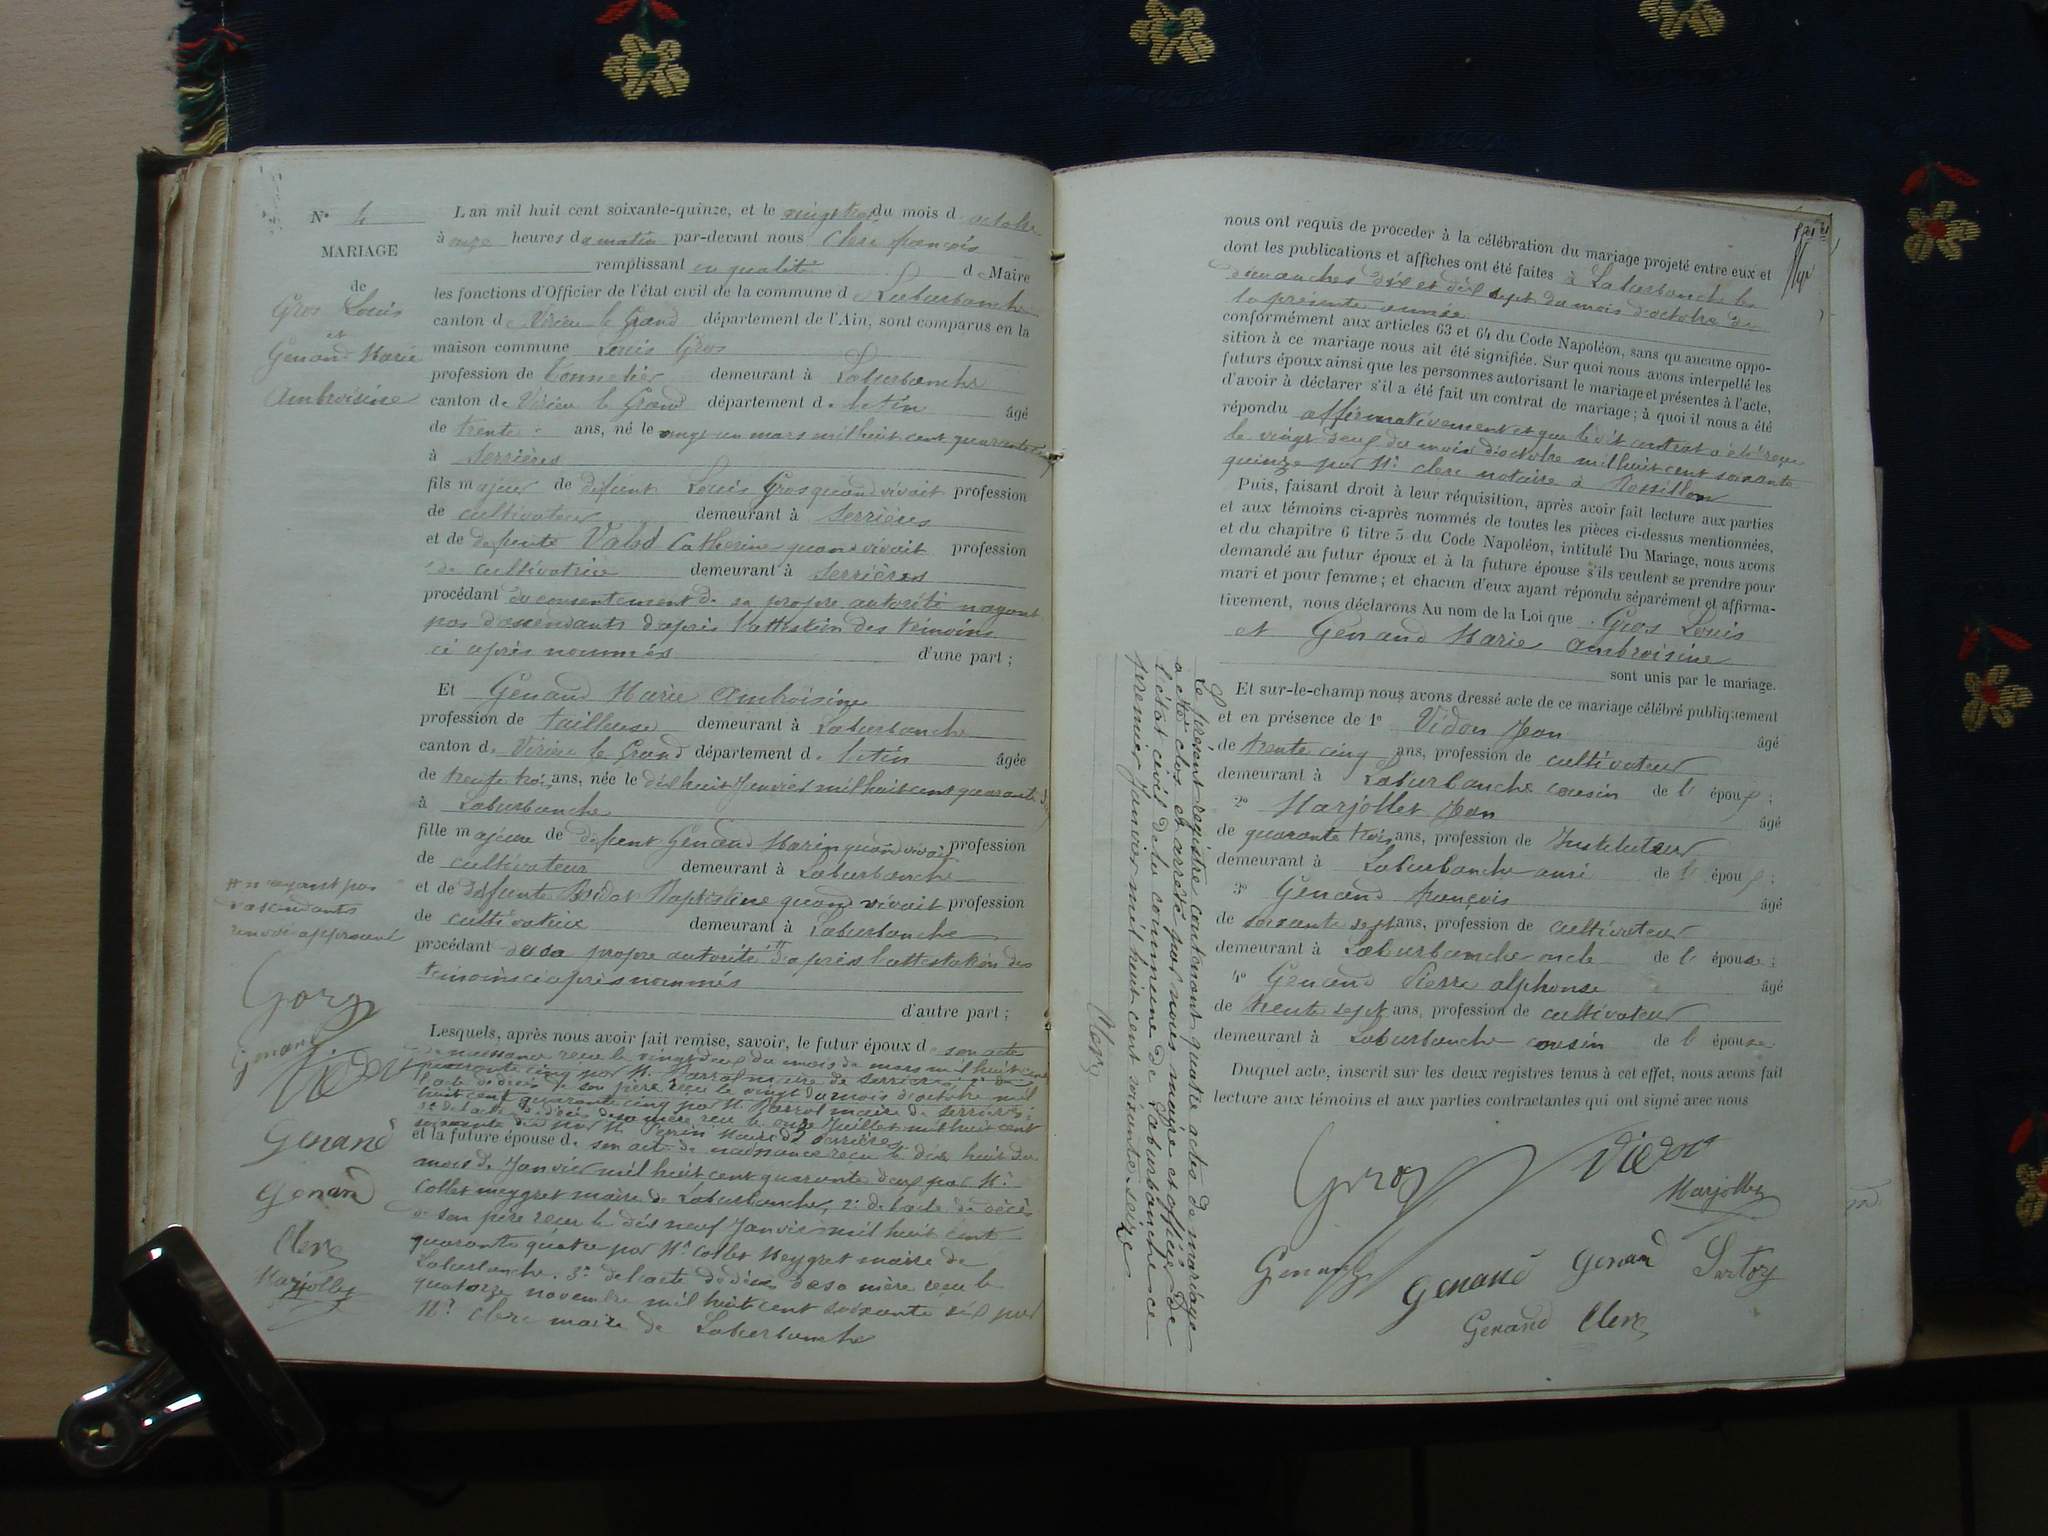 N° 4
MARIAGE
de
Gros Louis
et
Genand Marie
Ambroisine
L'an mil huit cent soixante-quinze, et le vingt trois du mois d octobre
à onze heures du matin par-devant nous Clerc françois
remplissant en qualité d e Maire
les fonctions d'Officier de l'état civil de la commune d e Laburbanche
canton de Virieu le Grand département de l'Ain, sont comparus en la
maison commune Louis Gros
profession de tonnelier demeurant à Laburbanche
canton de Virieu le Grand département de l'Ain âgé
de trente ans, né le vingt un mars mil huit cent quarante cinq
à Serrières
fils majeur de défunt Louis Gros quand vivait profession
de cultivateur demeurant à Serrières
et de defunte Catherine quand vivait profession
de cultivatrice demeurant à Serrières
procédant du consentement de sa propre autorité n'ayant
pas d'ascendants d'après l'attestion des témoins
ci après nommés d'une part ;
Et Genand Marie Ambroisine
profession de tailleuse demeurant à Laburbanche
canton de Virieu le Grand département de l'Ain âgée
de trente trois ans, née le dix huit Janvier mil huit cent quarante
à Laburbanche
fille majeure de defunt Genand Marin quand vivait profession
de cultivateur demeurant à Laburbanche
et de défunte Baptistine quand vivait profession
de cultivatrice demeurant à Laburbanche
procédant de sa propre autorité # d'après l'attestation des
temoins ci après nommés
d'autre part ;
# n'ayant pas
d'ascendants
renvoi approuvé
Lesquels, après nous avoir fait remise, savoir, le futur époux d e son acte
de naissance recu le vingt deux du mois de mars mil huit cent
quarante cinq par Mr maire de Serrières, 2° de
l'acte de décès de son père recu le vingt du mois d'octobre mil
huit cent quarante cinq par Mr maire de Serrières;
3° de l'acte de décès de sa mère recu le onze Juillet mil huit cent
soixante par Mr maire de Serrières
et la future épouse de son acte de naissance recu le dix huit du
mois de Janvier mil huit cent quarante deux par Mr
Collet meygret maire de Laburbanche, 2° de l'acte de décès
de son père recu le dix neuf Janvier mil huit cent
quarante quatre par Mr Collet Meygret maire de
Laburbanche. 3° de l'acte de décès de sa mère recu le
quatorze novembre mil huit cent soixante six par
Mr Clerc maire de Laburbanche
Gros
Genand
Vidon
Genand
Genand
Clerc
Marjollet
nous ont requis de proceder à la célébration du mariage projeté entre eux et
dont les publications et affiches ont été faites à Laburbanche les
dimanches dix et dix sept du mois d'octobre de
la présente année
conformément aux articles 63 et 64 du Code Napoléon, sans qu'aucune oppo-
sition à ce mariage nous ait été signifiée. Sur quoi nous avons interpellé les
futurs époux ainsi que les personnes autorisant le mariage et présentes à l'acte,
d'avoir à déclarer s'il a été fait un contrat de mariage ; à quoi il nous a été
répondu affirmativement et que le dit contrat a été reçu
le vingt deux du mois d'octobre mil huit cent soixante
quinze par Mr Clerc notaire à Rossillon
Puis, faisant droit à leur réquisition, après avoir fait lecture aux parties
et aux témoins ci-après nommés de toutes les pièces ci-dessus mentionnées,
et du chapitre 6 titre 5 du Code Napoléon, intitulé Du Mariage, nous avons
demandé au futur époux et à la future épouse s'ils veulent se prendre pour
mari et pour femme ; et chacun d'eux ayant répondu séparément et affirma-
tivement, nous déclarons Au nom de la Loi que Gros Louis
et Genand Marie Ambroisine
sont unis par le mariage.
Et sur-le-champ nous avons dressé acte de ce mariage célébré publiquement
et en présence de 1° Vidon Jean âgé
de trente cinq ans, profession de cultivateur
demeurant à Laburbanche cousin de l' époux ;
2° Marjollet Jean âgé
de quarante trois ans, profession de Instituteur
demeurant à Laburbanche ami de l' époux ;
3° Genand françois âgé
de soixante sept ans, profession de cultivateur
demeurant à Laburbanche oncle de l' épouse ;
4° Genand Pierre alphonse âgé
de trente sept ans, profession de cultivateur
demeurant à Laburbanche cousin de l' épouse
Duquel acte, inscrit sur les deux registres tenus à cet effet, nous avons fait
lecture aux témoins et aux parties contractantes qui ont signé avec nous
Gros Vidon
Marjollet
Genand Genand Genand Sartoz
Genand Clerc
Le présent registre contenant quatre actes de mariage
a été clos et arrêté par nous maire et officier de
l'état civil de la commune de Laburbanche ce
premier Janvier mil huit cent soixante-seize
Clerc